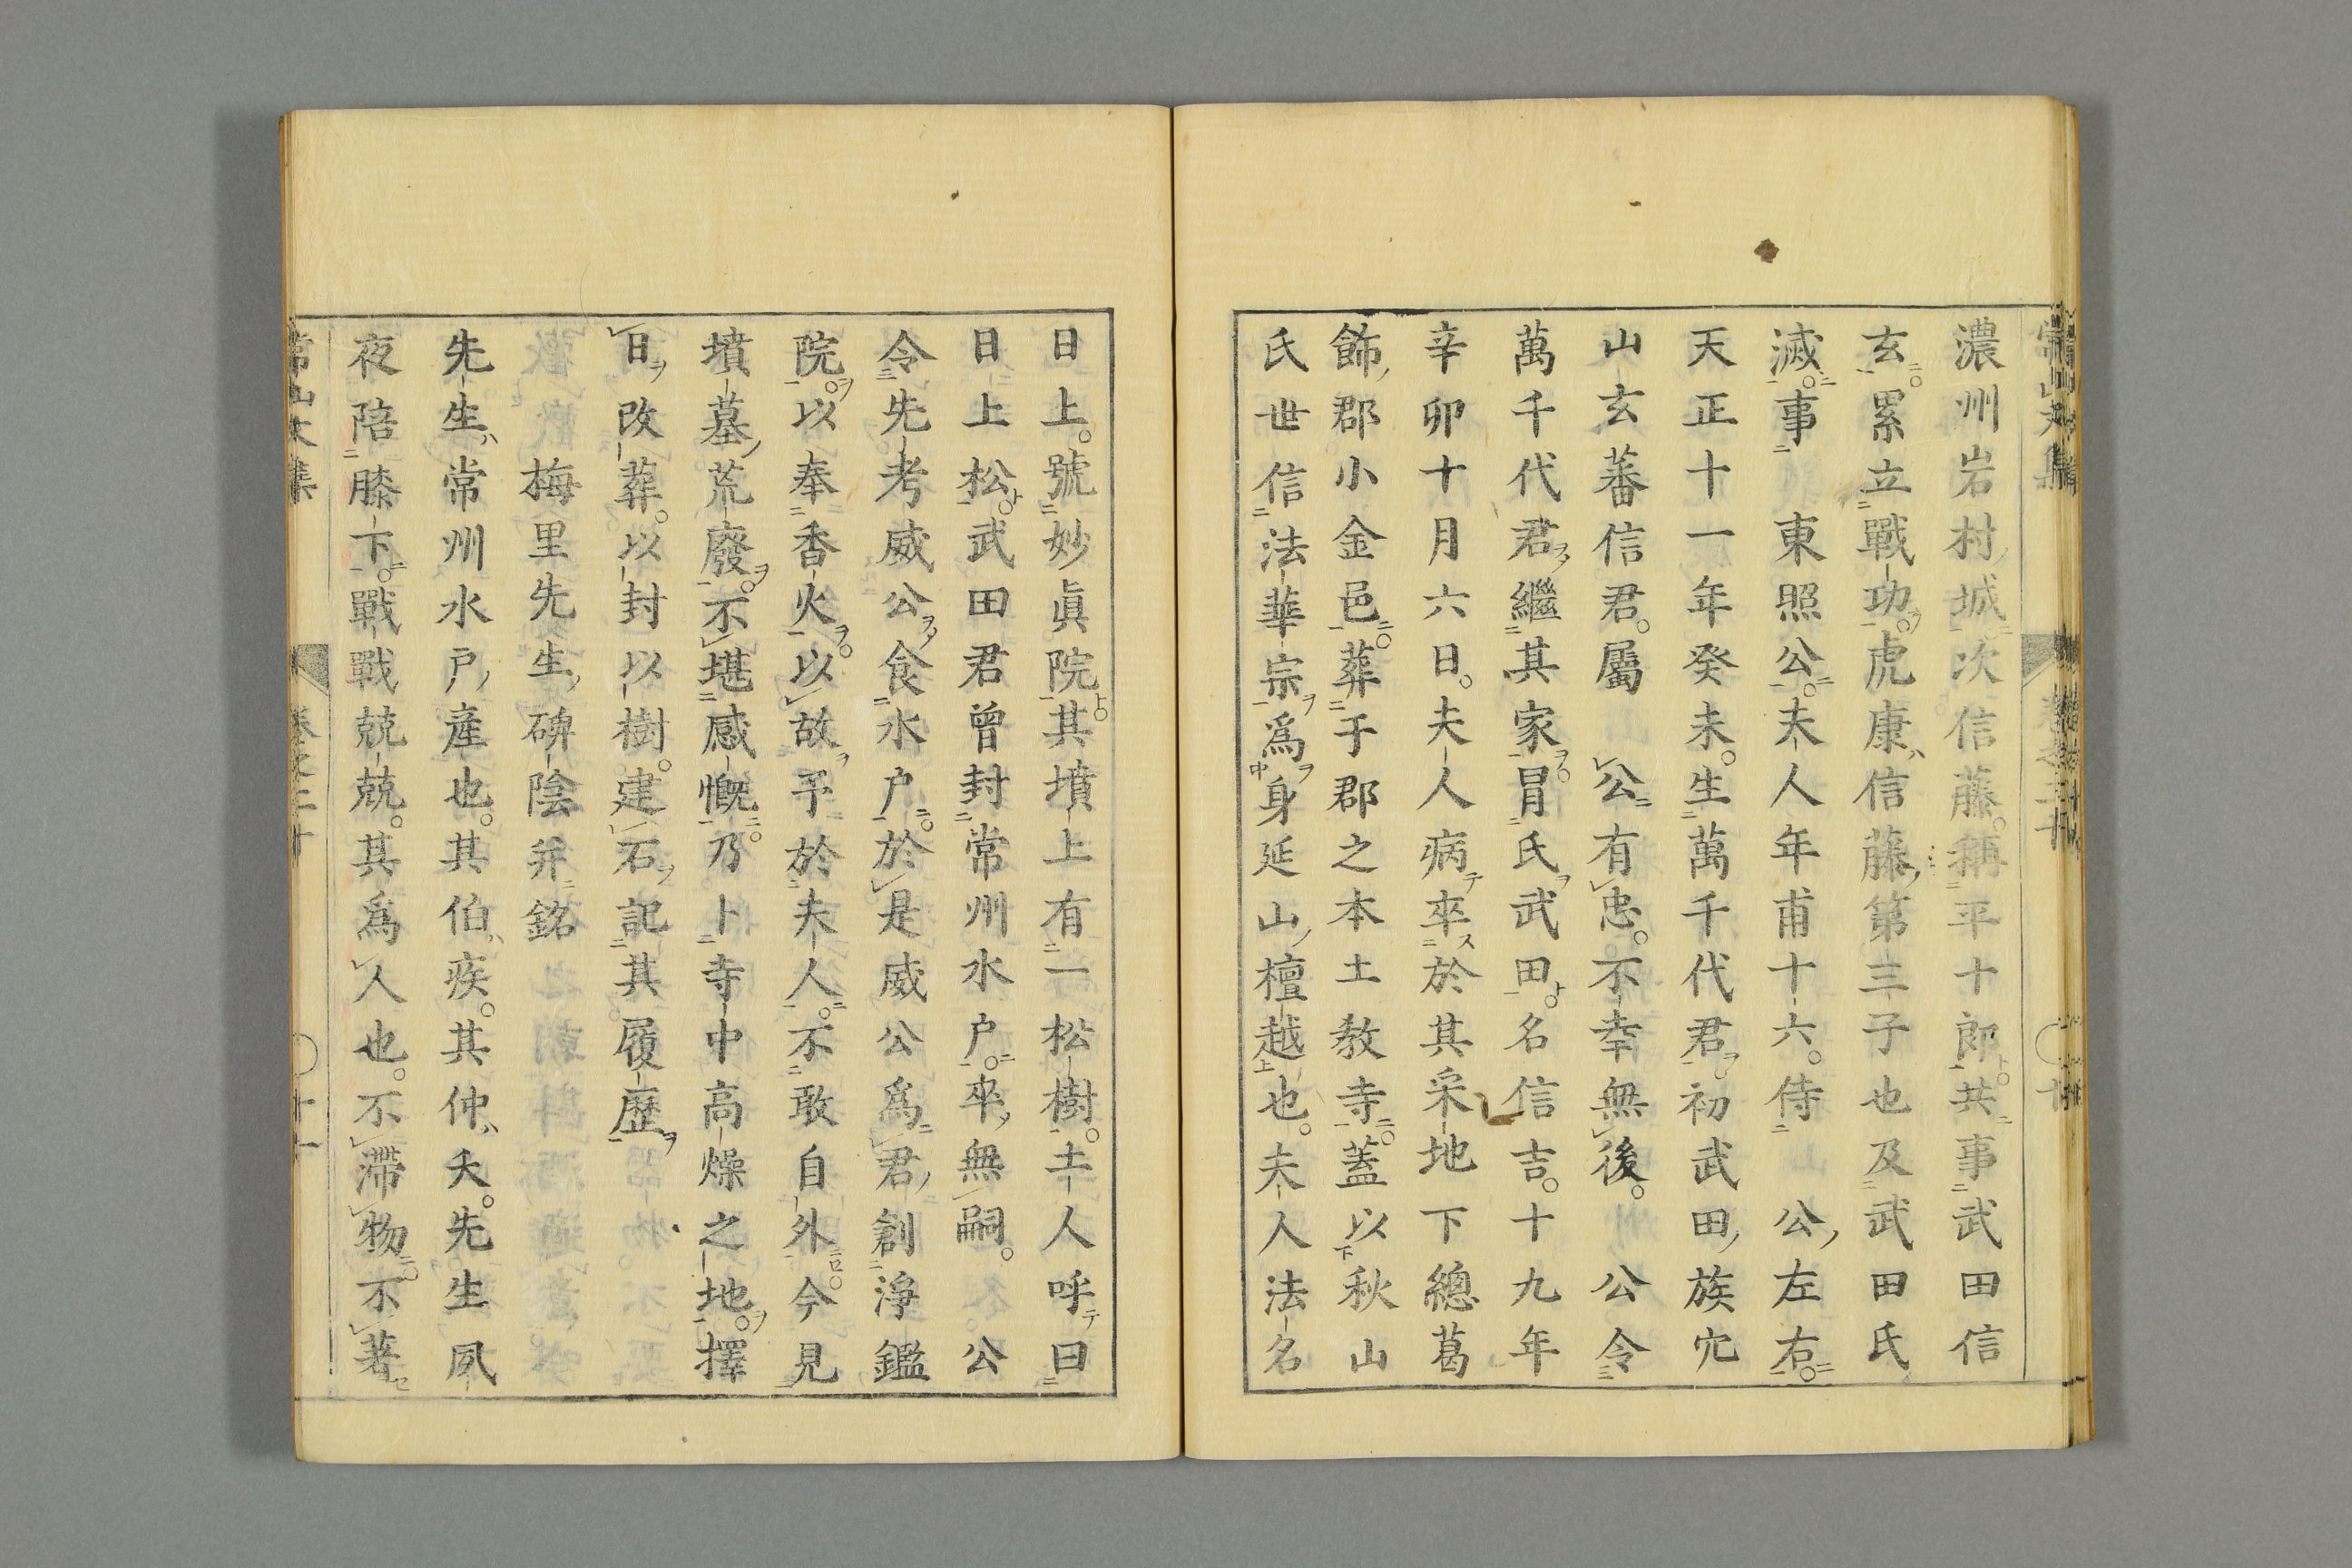 濃州岩村城次信藤稱平十郎共事武田信
玄累立戰功虎康信藤第三子也及武田氏
滅事　東照公夫人年甫十六侍　公左右
天正十一年癸未生萬千代君初武田族穴
山玄蕃信君屬　公有忠不幸無後　公令
萬千代君繼其家冒氏武田名信吉十九年
辛卯十月六日夫人病卒於其采地下總葛
飾郡小金邑葬于郡之本土敎寺蓋以秋山
氏世信法華宗爲身延山檀越也夫人法名
日上號妙眞院其墳上有一松樹土人呼曰
日上松武田君曾封常州水戶卒無嗣　公
令先考威公食水戶於是威公爲君創淨鑑
院以奉香火以故予於夫人不敢自外今見
墳墓荒廢不堪感慨乃卜寺中高燥之地擇
日改葬以封以樹建石記其履歷
梅里先生碑陰幷銘
先生常州水戶產也其伯疾其仲夭先生夙
夜陪膝下戰戰兢兢其爲人也不滯物不著
常山文集
卷之二十